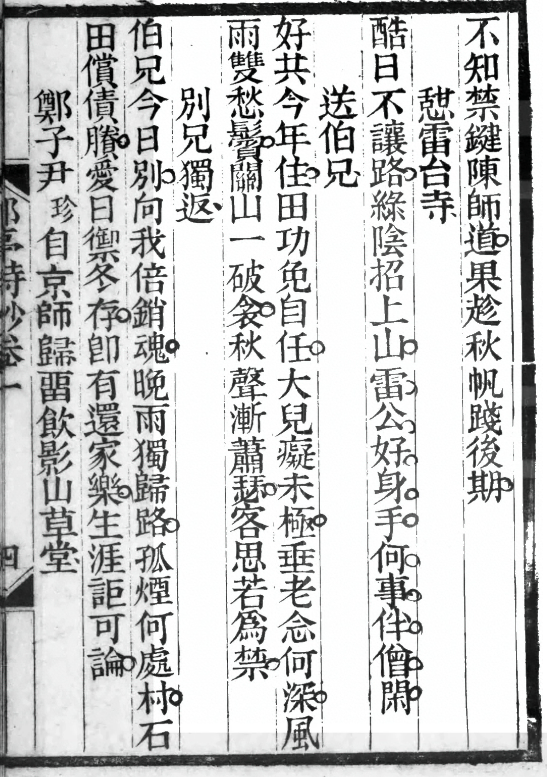 不知禁鍵陳師道果趁秋帆踐後期
憇雷台寺
酷日不讓路綠陰招上山雷公好身手何事伴僧閑
送伯兄
好共今年住田功免自任大兒癡未極垂老念何深風
雨雙愁鬢關山一破衾秋聲漸蕭瑟客思若爲禁
別兄獨返
伯兄今日別向我倍銷魂晚雨獨歸路孤煙何處村石
田償債賸愛日禦冬存卽有還家樂生涯詎可論
鄭子尹珍自京師歸畱飲影山草堂
郘亭詩鈔卷一
四